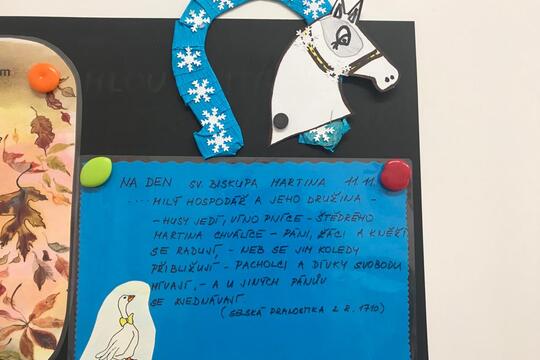 m
NA DEN SV. BISKUPA MARTINA 11.11.
.... MILÝ HOSPODÁŘ A JEHO DRUŽINA -
- HUSY JEDÍ, VÍNO PIJÍCE - ŠTĚDRÉHO
MARTINA CHVÁLÍCE - PÁNI, ŽÁCI A KNĚŽÍ
SE RADUJÍ, - NEB SE JIM KOLEDY
PŘIBLIŽUJÍ - PACHOLCI A DÍVKY SVOBODU
MÍVAJÍ, - A U JINÝCH PÁNŮV
SE ZJEDNÁVAJÍ.
(SELSKÁ PRANOSTIKA Z R. 1710)